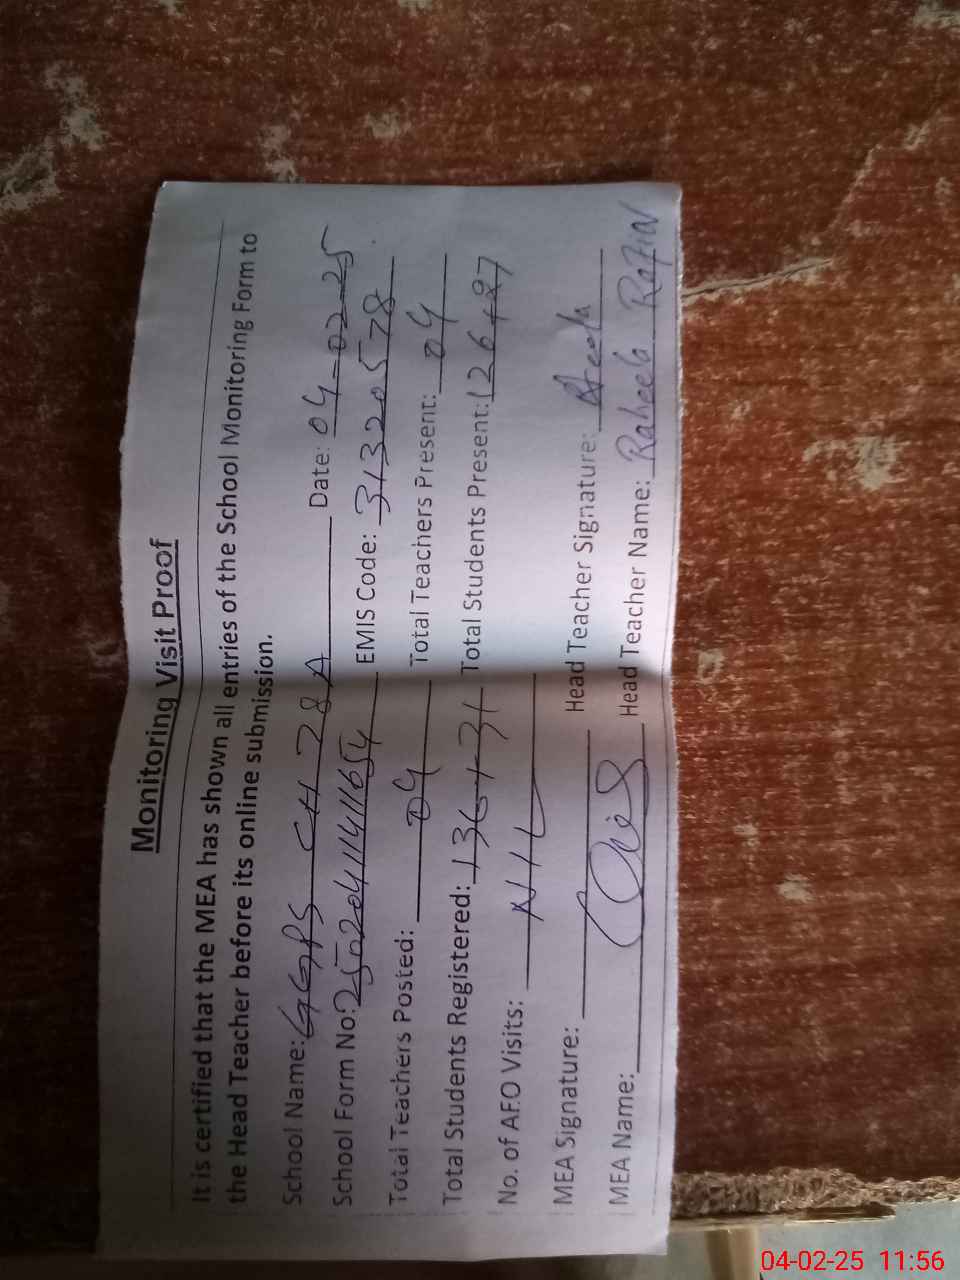 Monitoring Visit Proof
It is certified that the MEA has shown all entries of the School Monitoring Form to
the Head Teacher before its online submission.
School Name: GGPS CH 78 A Date: 04-02-25
School Form No: EMIS Code: 31320578
Total Teachers Posted: 04 Total Teachers Present: 04
Total Students Registered: 136+31 Total Students Present: 126+27
No. of AFO Visits: NIL
MEA Signature: Head Teacher Signature:
MEA Name: Head Teacher Name: Raheela
04-02-25 11:56